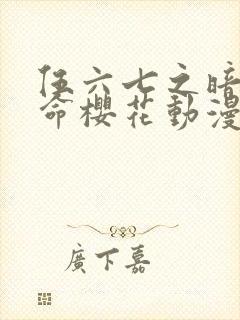 伍六七之暗
命櫻花動漫
廣下嘉